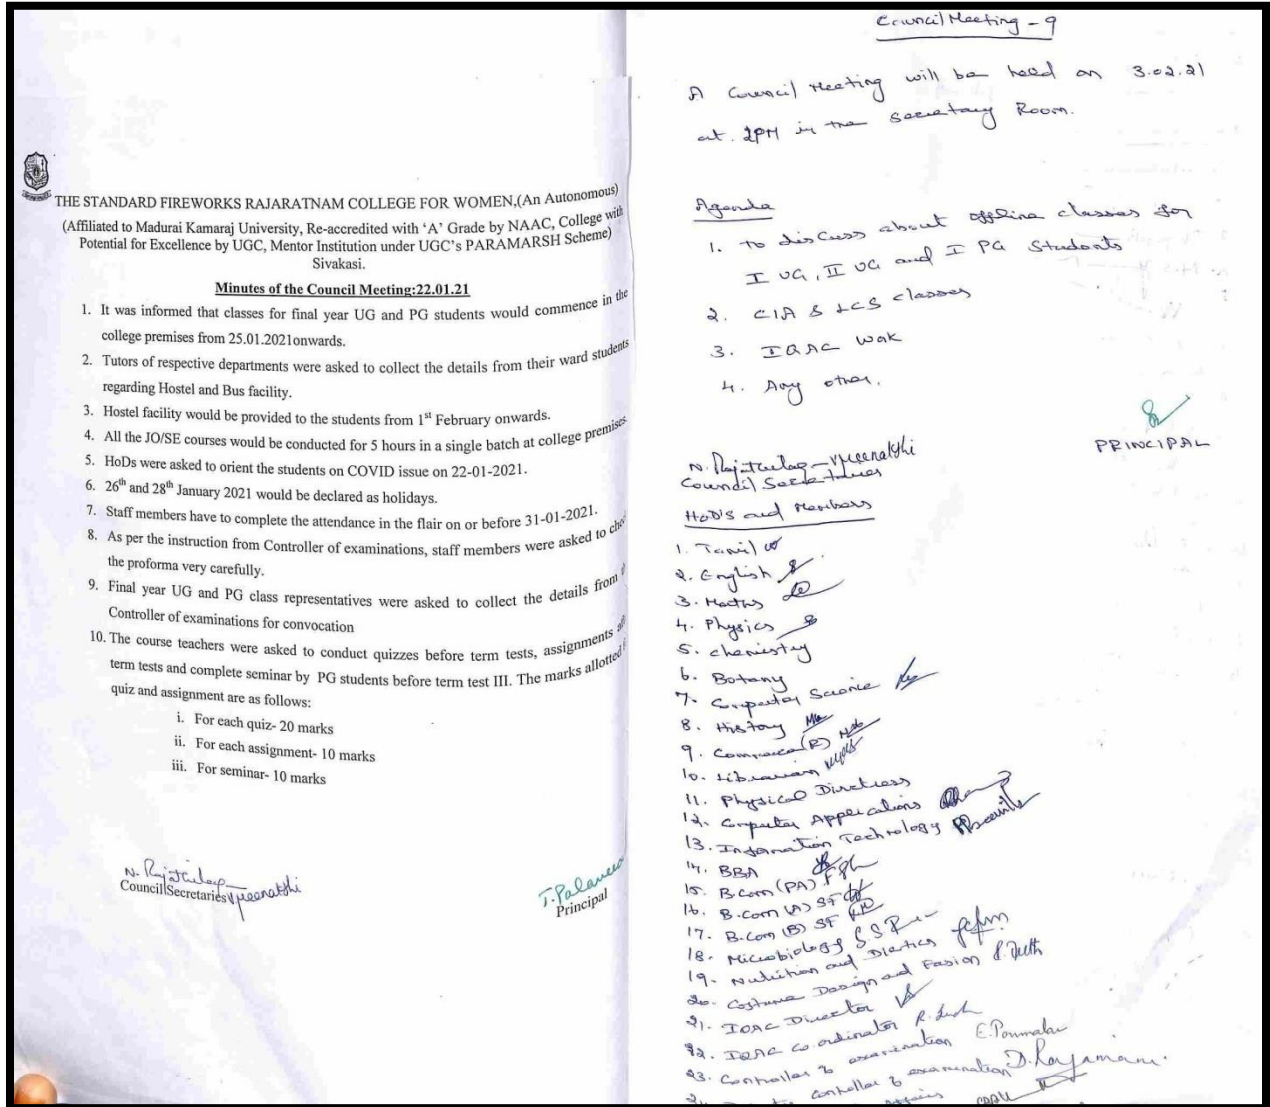 THE STANDARD FIREWORKS RAJARATNAM COLLEGE FOR WOMEN,(An Autonomous)
(Affiliated to Madurai Kamaraj University, Re-accredited with ‘A’ Grade by NAAC, College with
Potential for Excellence by UGC, Mentor Institution under UGC’s PARAMARSH Scheme)
Sivakasi.
Minutes of the Council Meeting:22.01.21
1. It was informed that classes for final year UG and PG students would commence in the
college premises from 25.01.2021onwards.
2. Tutors of respective departments were asked to collect the details from their ward students
regarding Hostel and Bus facility.
3. Hostel facility would be provided to the students from 1st February onwards.
4. All the JO/SE courses would be conducted for 5 hours in a single batch at college premises.
5. HoDs were asked to orient the students on COVID issue on 22-01-2021.
6. 26th and 28th January 2021 would be declared as holidays.
7. Staff members have to complete the attendance in the flair on or before 31-01-2021.
8. As per the instruction from Controller of examinations, staff members were asked to
the proforma very carefully.
9. Final year UG and PG class representatives were asked to collect the details from
Controller of examinations for convocation
10. The course teachers were asked to conduct quizzes before term tests, assignments
term tests and complete seminar by PG students before term test III. The marks allotted
quiz and assignment are as follows:
i. For each quiz- 20 marks
ii. For each assignment- 10 marks
iii. For seminar- 10 marks
Council Secretaries
Principal
Council Meeting - 9
A Council Meeting will be held on 3.02.21
at 2PM in the Secretary Room.
Agenda
1. To discuss about offline classes for
I UG, II UG and I PG Students
2. CIA & LCS classes
3. IQAC Wok
4. Any other.
PRINCIPAL
Council Secretaries
HoD's and Members
1. Tamil
2. English
3. Maths
4. Physics
5. Chemistry
6. Botany
7. Computer Science
8. History
9. Commerce(R)
10. Librarian
11. Physical Directress
12. Computer Applications
13. Information Technology
14. BBA
15. B.Com (PA)
16. B.Com (A) SF
17. B.Com (B) SF
18. Microbiology
19. Nutrition and Dietics
20. Costume Design and Fasion
21. IQAC Director
22. IQAC Co ordinator
23. Controller of examination E. Ponmalar
controller of examination D. Rajamani.